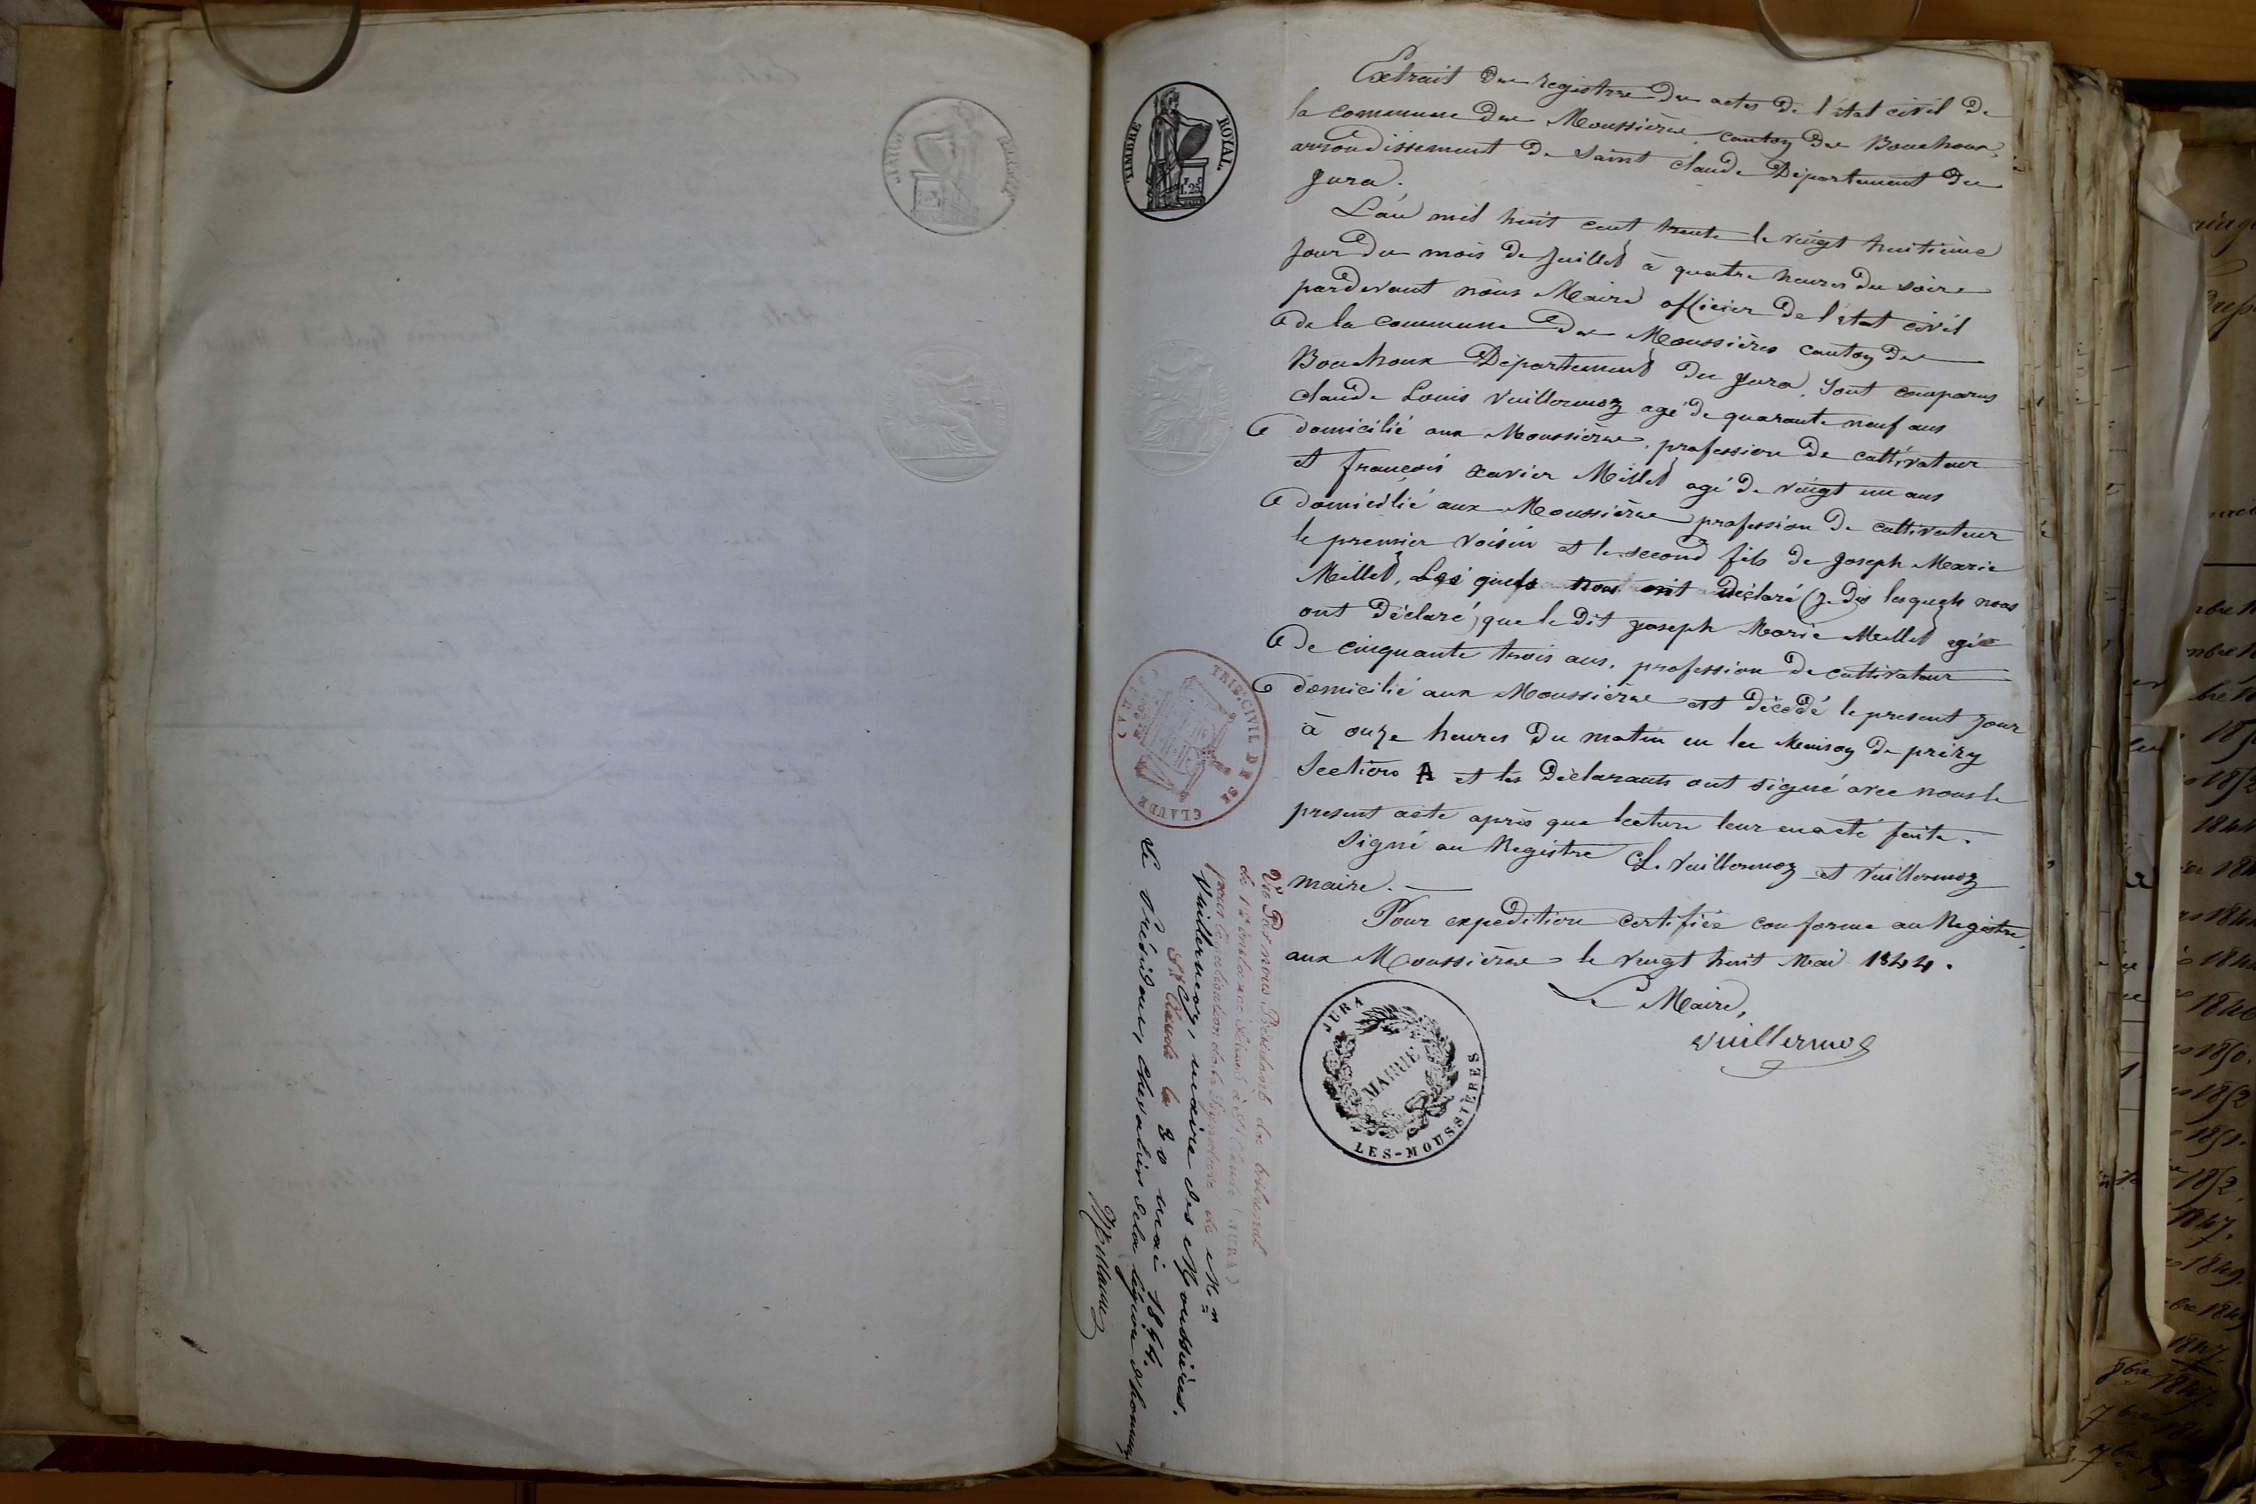 TIMBRE ROYAL
1.25
Extrait du registre des actes de l'état civil de
la commune des Moussières, canton des Bouchoux,
arrondissement de Saint Claude Département du
Jura.
L'an mil huit cent trente le vingt huitième
jour du mois de Juillet à quatre heures du soire
pardevant nous Maire officier de l'état civil
de la commune des Moussières canton des
Bouchoux Département du Jura, Sont comparus
Claude Louis Vuillermoz agé de quarante neuf ans
domicilié aux Moussières, profession de cultivateur
et françois xavier Millet agé de vingt un ans
domicilié aux Moussières profession de cultivateur
le premier voisin et le second fils de Joseph Marie
Millet, Les quels nous ont déclaré (je dis lesquels nous
ont déclaré) que le dit Joseph Marie Millet agé
de cinquante trois ans, profession de cultivateur
domicilié aux Moussières est décédé le present jour
à onze heures du matin en la Maison de
Section A et les déclarants ont signé avec nous le
present acte après que lecture leur en a été faite.
Signé au Registre C.L. Vuillermoz et Vuillermoz
maire.
Pour expedition certifiée conforme au Registre,
aux Moussières le vingt huit Mai 1844.
Le Maire,
Vuillermoz
JURA
MAIRIE
LES-MOUSSIÈRES
TRIB. CIVIL DE ST CLAUDE
(JURA)
Vu Par nous Président du tribunal
de 1ère instance séant à St Claude (JURA)
pour légalisation de la Signature de Mr
Vuillermoz, maire des Moussières.
St Claude le 30 mai 1844.
Le Président, chevalier de la légion d'honneur,